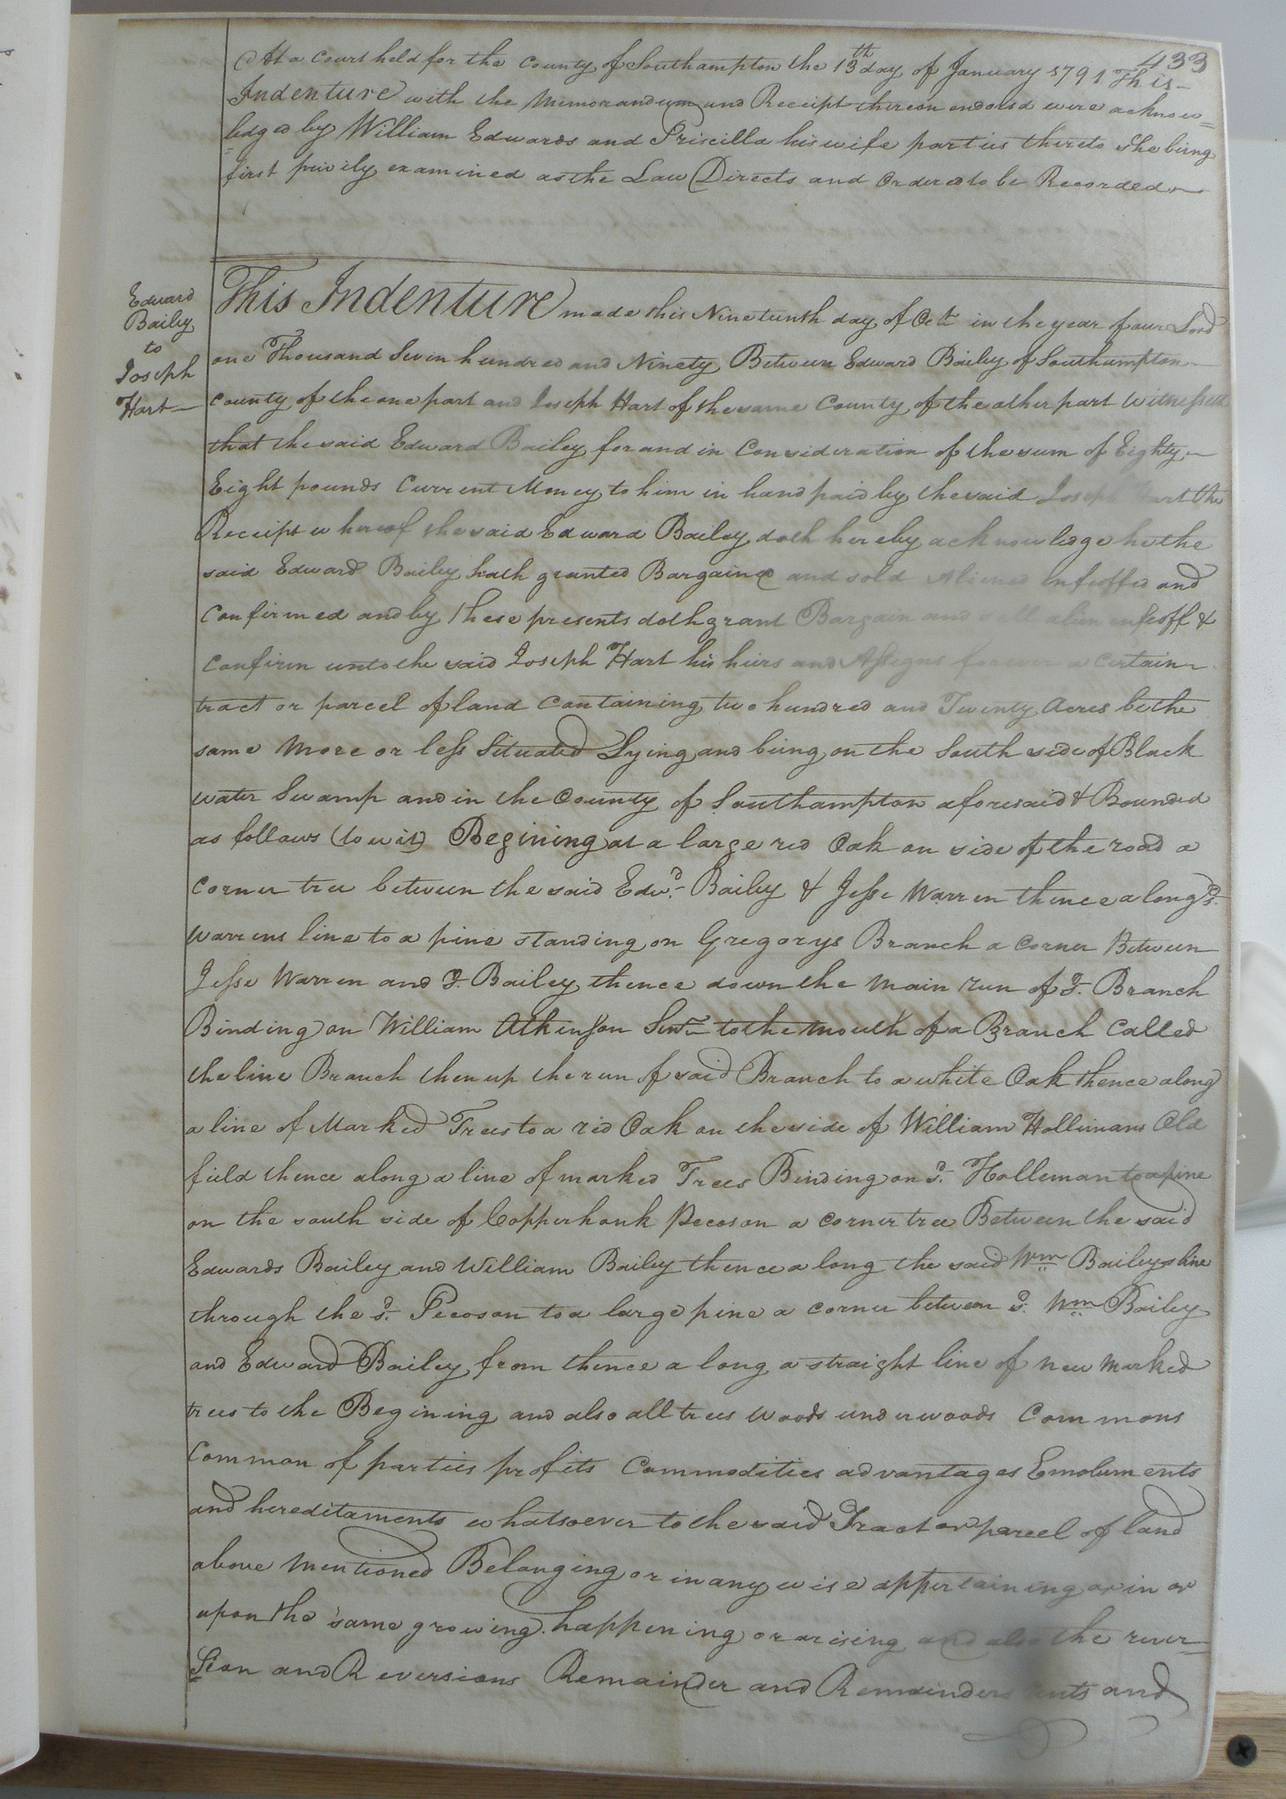 433
At a Court held for the County of Southampton the 13th day of January 1791 This
Indenture with the Memorandum and Receipt thereon endorsd were acknow=
=ledged by William Edwards and Priscilla his wife parties thereto She being
first privily examined as the Law Directs and Ordered to be Recorded
Edward
Baily
to
Joseph
Hart
This Indenture made this Nineteenth day of Octr in the year of our Lord
one Thousand Seven hundred and Ninety Between Edward Bailey of Southampton
County of the one part and Joseph Hart of the same County of the other part Witnesseth
that the said Edward Bailey for and in Consideration of the sum of Eighty
Eight pounds Current Money to him in hand paid by the said Joseph Hart the
Receipt whereof the said Edward Bailey doth hereby acknowledge he the
said Edward Bailey hath granted Bargained and sold Aliened Enfeoffed and
Confirmed and by these presents doth grant Bargain and sell alien enfeoff &
Confirm unto the said Joseph Hart his heirs and Assigns forever a certain
tract or parcel of land Containing two hundred and Twenty Acres be the
same More or less Situated Lying and being on the South side of Black
water Swamp and in the County of Southampton aforesaid & Bounded
as follows (to wit) Begining at a large red Oak on side of the road a
Corner tree between the said Edwd. Bailey & Jesse Warren thence along sd.
Warrens line to a pine standing on Gregorys Branch a corner Between
Jesse Warren and sd. Bailey thence down the Main run of sd. Branch
Binding on William Atkinson Senr to the Mouth of a Branch Called
the line Branch then up the run of said Branch to a white Oak thence along
a line of Marked Trees to a red Oak on the side of William Hollimans Old
field thence along a line of marked Trees Binding on sd. Holleman to a pine
on the south side of Copperhonk Pecoson a corner tree Between the said
Edwards Bailey and William Bailey thence along the said Wm Baileys line
through the sd. Pecoson to a large pine a corner between sd. Wm Bailey
and Edward Bailey from thence a long a straight line of new Marked
trees to the Begining and also all trees woods underwoods Commons
Common of parties profits Commodities advantages Emoluments
and hereditaments whatsoever to the said Tract or parcel of land
above Mentioned Belonging or in any wise appertaining or in or
upon the same growing happening or arising and also the rever=
Sion and Reversions Remainder and Remainders rents and